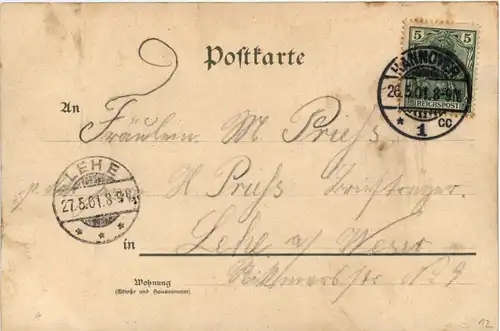 Postkarte
5 5
REICHSPOST
HANNOVER
26.5.01. 8-9N.
* 1 CC
An
Fräulein M Prieß
H Prieß Briefträger
LEHE
27.5.01. 8-9V.
* * *
in Lehe a/ Weser
No 4
Wohnung
(Straße und Hausnummer)
12